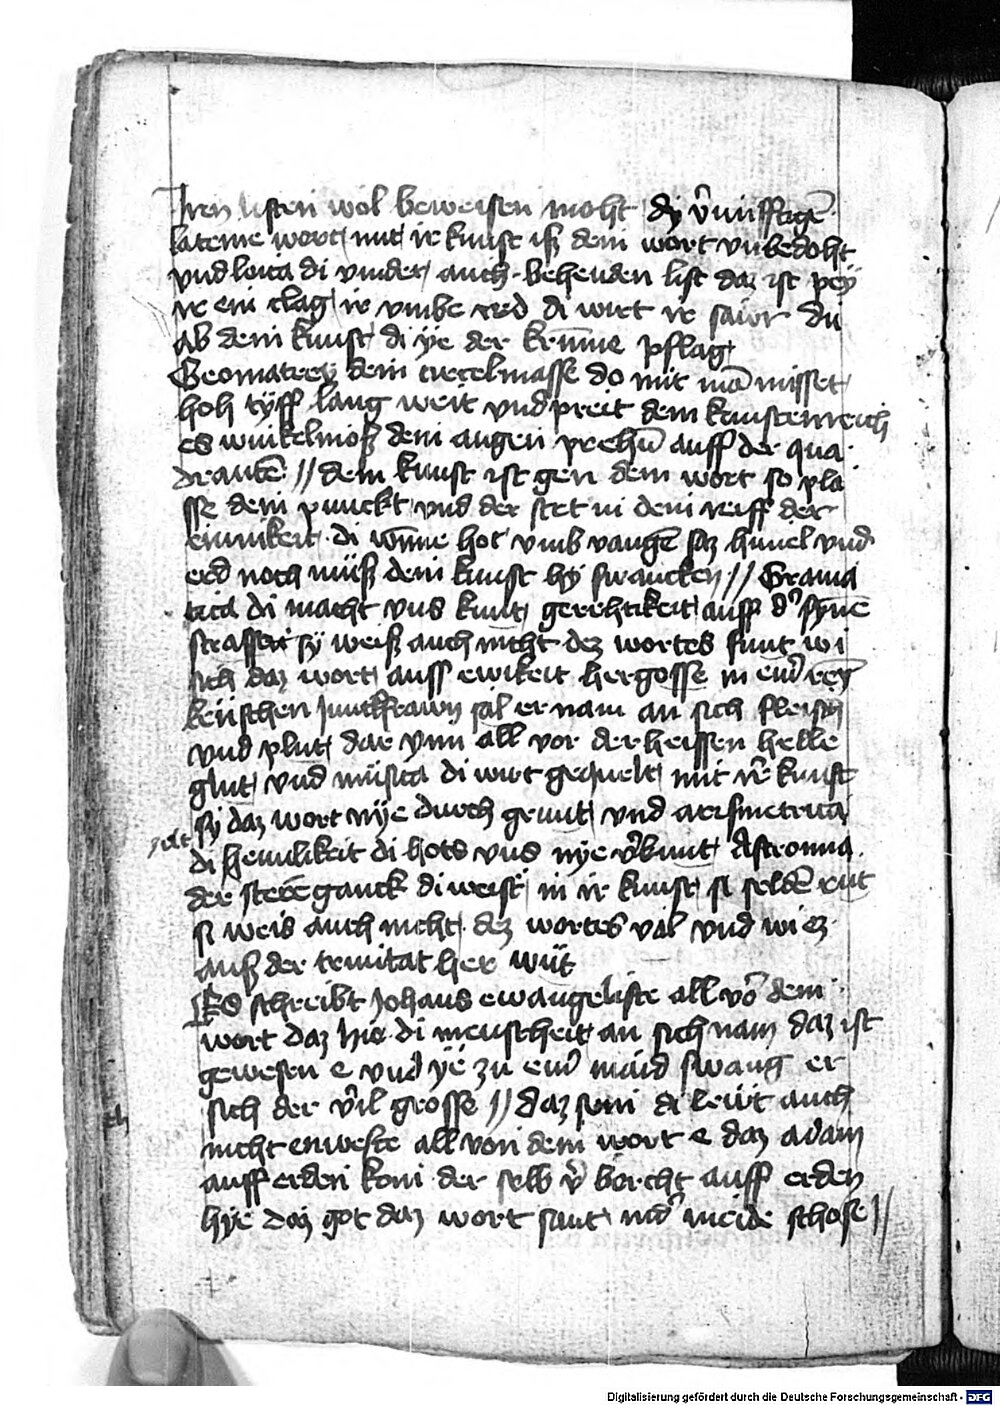 Iren listen wol beweisen moht dÿ v̄nufftigē
lateine wort mit ir kunst iſz dem wort vnbedoht
vnd loica di vindet auch behenden list daz ist peÿ
ir ein clag ir vmbe red di wirt ir sawr du
ab dem kunst di ÿe der krūme pflag
Geomatreÿ dein circelmasse do mit mā misset
hoh tÿff lang weit vnd preit dem kunstenreich
es winkelmoß dem augen prehū auff der qua
drantē // dein kunst ist gen dem wort so pla
sse dein punckt vnd der stet in dem reiff der
einikeit di wōne hot vmb vangē sÿ himel vnd
erd noch müß dein kunst hÿ swancken // Grama
tica di macht vns kunt gerehtikeit auff d' sÿne
strassen sÿ weiß auch nicht dez wortes funt wi
sich daz wort auss ewikeit hergosse in ein' reÿ
keüschen junckfrawn sal er nam an sich fleisch
vnd plut dar vmm all vor der heissen helle
glut vnd müsica di wirt gequelt mit irē kunst
sÿ daz wort nÿe durch grunt vnd arismetrica
di heimlikeit di hots vns nÿe v̄kunt Astronna
der sterē ganck di weist in ir kunst si seldē rut
si weis auch nicht dez wortes val vnd wi ez
auß der trinitat her wüt
Es schreibt Johans ewangeliste all vō dem
wort daz hie di menscheit an sich nam daz ist
gewesen e vnd ÿe zu ein' maid swang er
sich der v̄il grosse // daz sein di leüt auch
nicht enweste all von dem wort e daz adam
auff erden kom der selb v̄ borcht auff erden
hÿe daz got daz wort sant in d' meide schose //